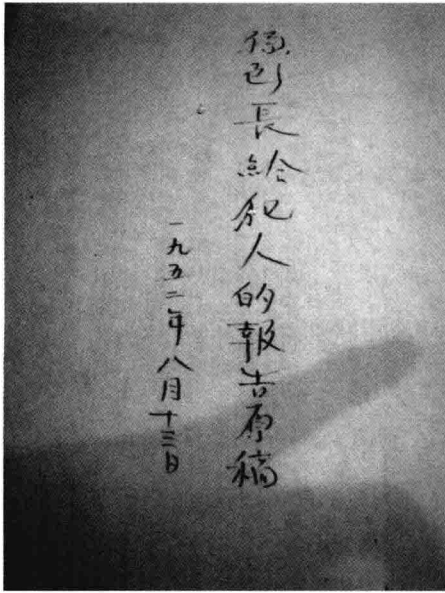 所長給犯人的報告原稿
一九五二年八月十三日